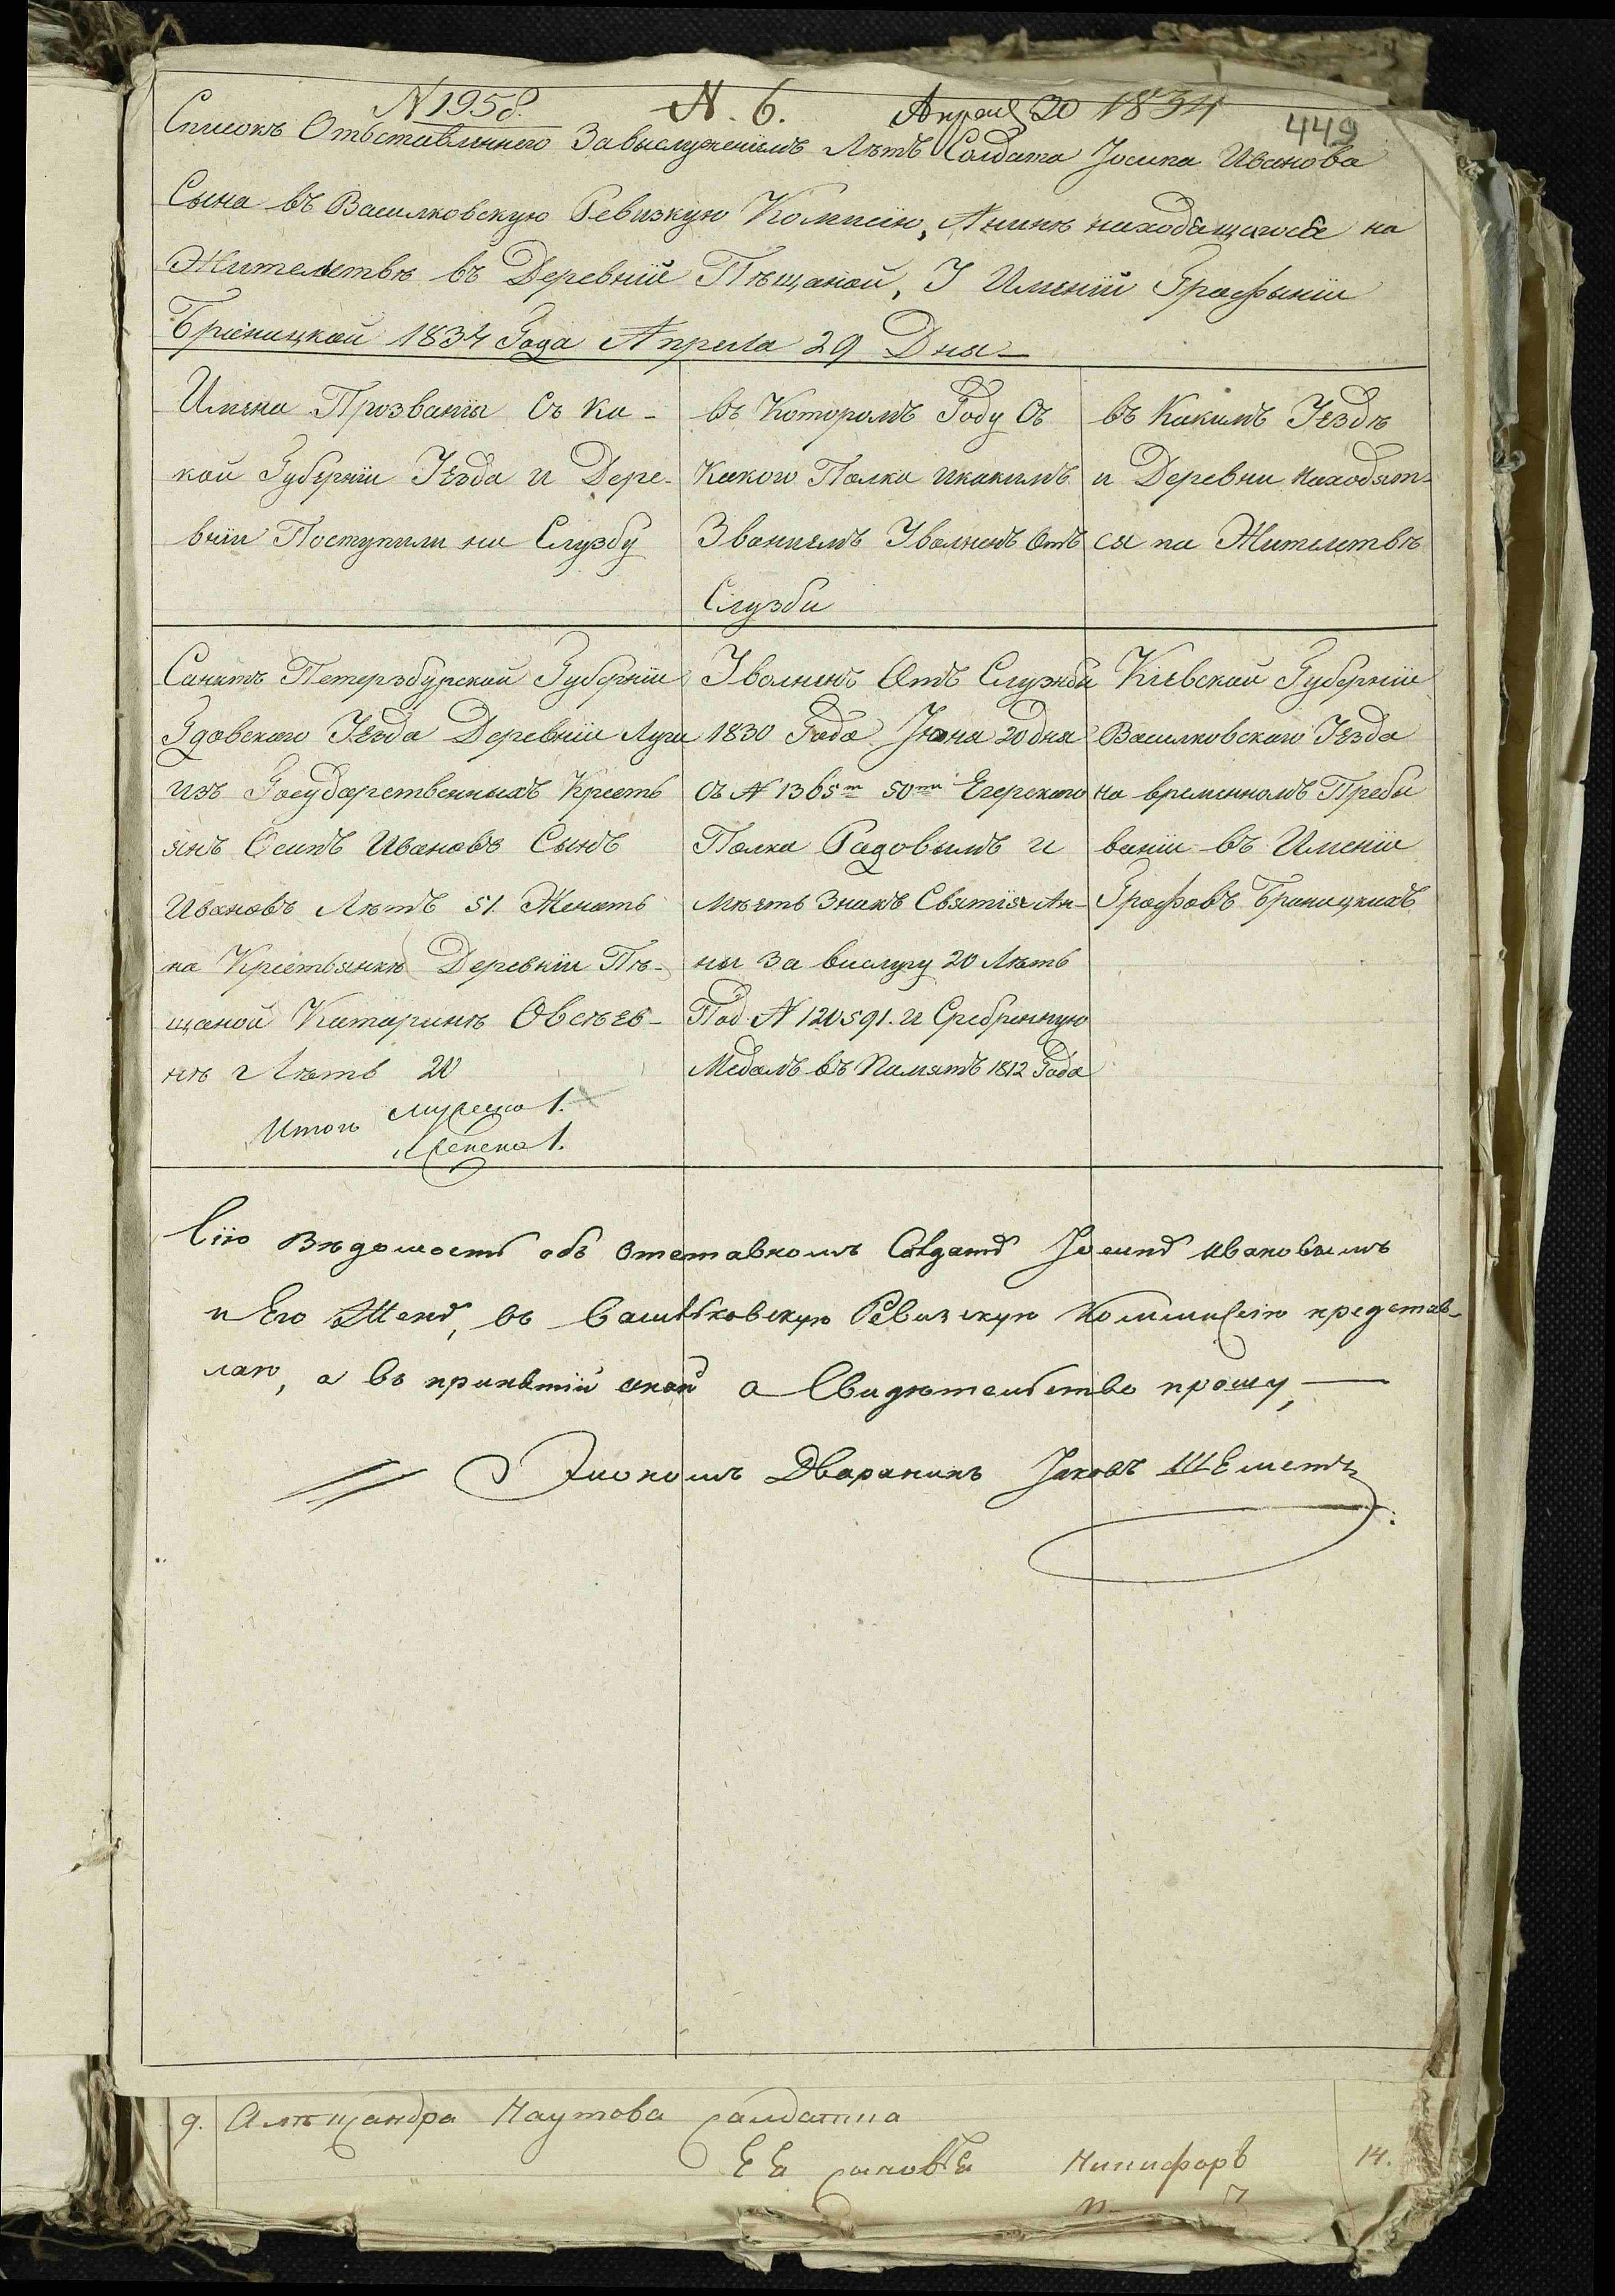 N 1958. N. 6. Апреля 20 1834
449
Списокъ Отъставленнего За выслуженіемъ Лѣтъ Солдата Іосипа Иванова
Сына въ Василковскую Ревизкую Комисію, А нинѣ находящагося на
Жителствѣ въ Деревніи Пѣщаной, І Именіи Графыніи
Браницкой 1834 Года Апреля 29 Дня —
Имена Прозванія Съ Ка-
кой Губерніи Уѣзда и Дере-
вніи Поступили на Слузбу
въ Которомъ Году Съ
Какого Полка икакимъ
Званіемъ Уволненъ Отъ
Слузби
въ Какимъ Уѣздѣ
и Деревни находят-
ся на Жителствѣ
Санктъ Петерзбурской Губерніи
Гдовского Уѣзда Деревніи Луги
изъ Государственныхъ Кресть
янъ Осипъ Ивановъ Сынъ
Ивановъ Лѣтъ 51. Женатъ
на Крестьянкѣ Деревніи Пѣ-
щаной Катаринѣ Овсѣев-
нѣ Лѣтъ 20
Итого мужеска 1.
женска 1.
Уволненъ Отъ Службы
1830 Года Іюна 20 дня
Съ N 1365m 50го Егерского
Полка Радовымъ и
Мѣеть Знакъ Святія Ан-
ны За вислугу 20 Лѣтъ
Под N 120591. и Сребренную
Медалъ въ Памятъ 1812 Года
Кіевской Губерніи
Василковскаго Уѣзда
на временномъ Пребы
ваніи въ Именіи
Графовъ Браницкихъ
Сію Вѣдомость объ Отставномъ Солдатѣ Іосипѣ Ивановымъ
и Его Женѣ, въ Васильковскую Ревизскую Коммисію представ-
лаю, а въ принятіи оной о Свидѣтельство прошу, —
Экономъ Дваранинъ Јаковъ Шеметъ
9. Алекъсандра Наумова салдатка
Ея сыновья Никифоръ 14.